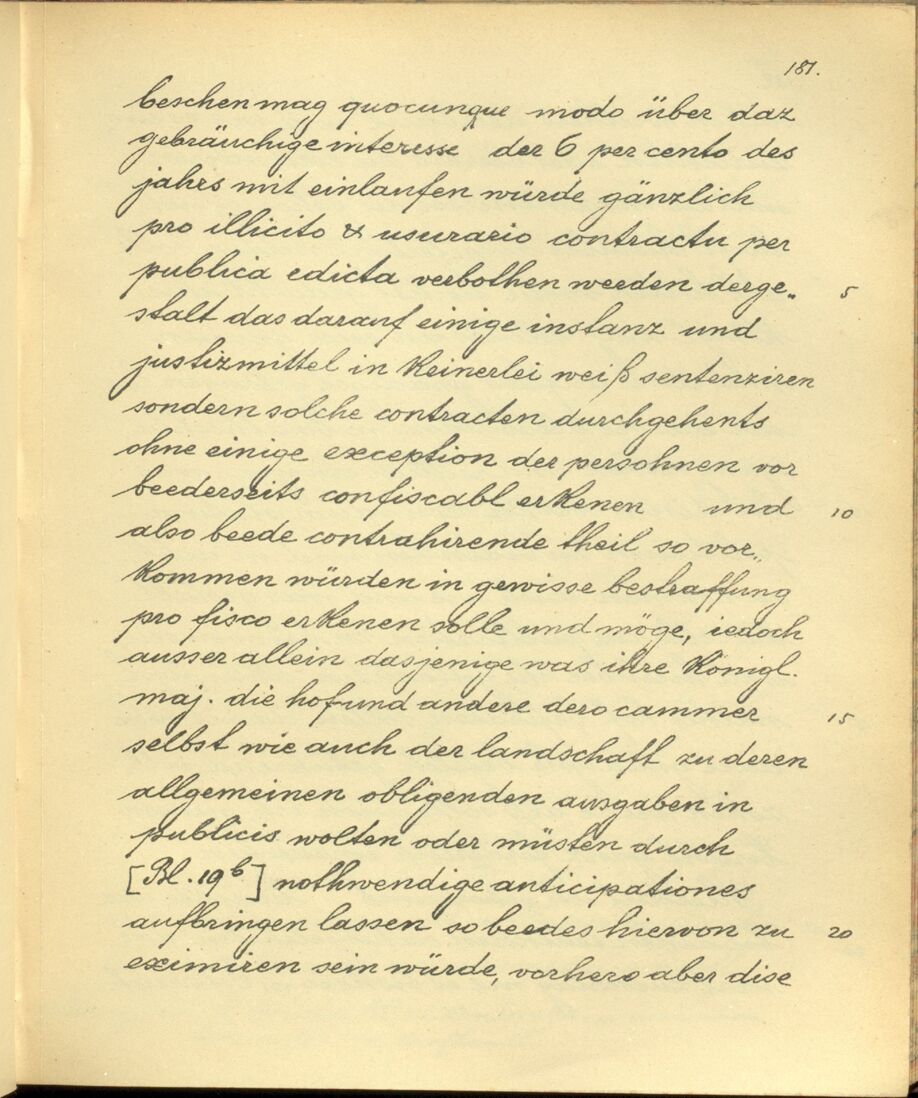 181.
beschen mag quocunque modo über daz
gebräuchige interesse der 6 per cento des
jahrs mit einlaufen würde gänzlich
pro illicito & usurario contractu per
publica edicta verbothen werden derge„ 5
stalt das darauf einige instanz und
justizmittel in keinerlei weiß sentenziren
sondern solche contracten durchgehents
ohne einige exception der persohnen vor
beederseits confiscabl erkenen und 10
also beede contrahirende theil so vor„
kommen würden in gewisse bestraffung
pro fisco erkenen solle und möge, iedoch
ausser allein dasjenige was ihre Königl.
maj. die hof und andere dero cammer 15
selbst wie auch der landschaft zu deren
allgemeinen obligenden ausgaben in
publicis wolten oder müsten durch
[Bl. 19b] nothwendige anticipationes
aufbringen lassen so beedes hiervon zu 20
eximiren sein würde, vorhero aber dise